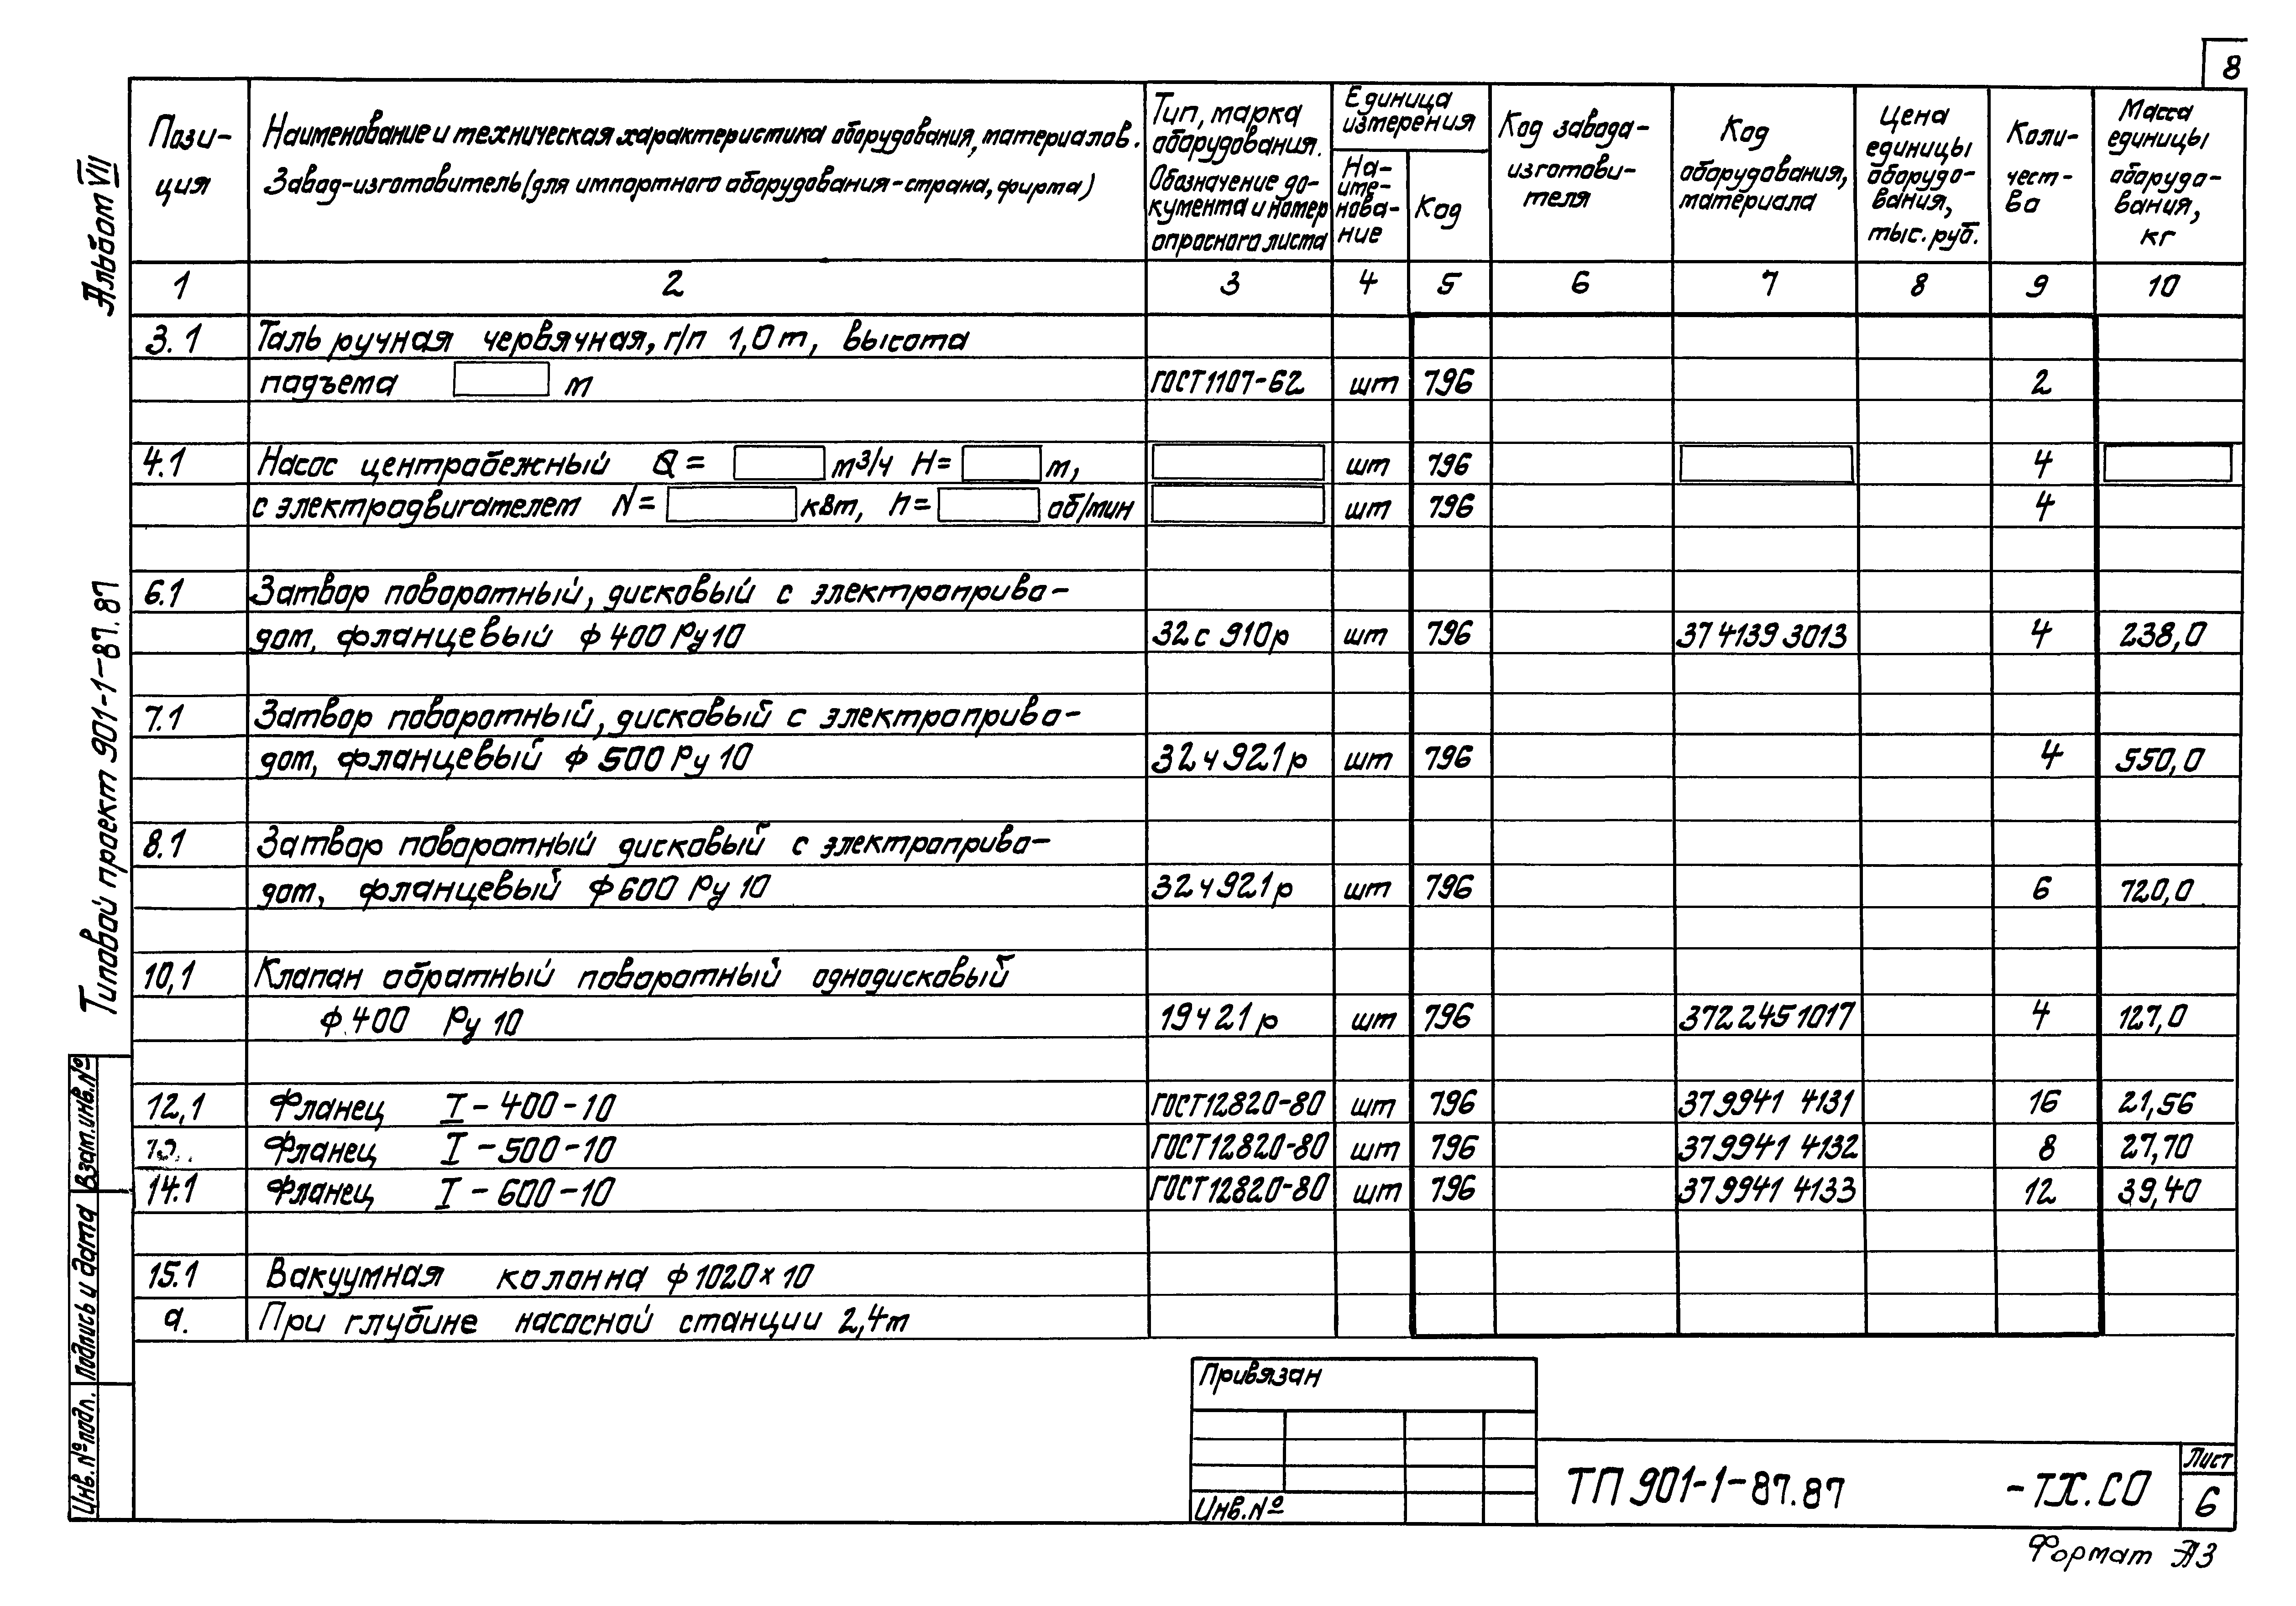 8
Альбом VII
Типовой проект 901-1-87.87
Пози-
ция
Наименование и техническая характеристика оборудования, материалов.
Завод-изготовитель (для импортного оборудования-страна, фирма)
Тип, марка
оборудования.
Обозначение до-
кумента и номер
опросного листа
Единица
измерения
На-
име-
нова-
ние
Код
Код завода-
изготови-
теля
Код
оборудования,
материала
Цена
единицы
оборудо-
вания,
тыс. руб.
Коли-
чест-
во
Масса
единицы
оборудо-
вания,
кг
1 2 3 4 5 6 7 8 9 10
3.1 Таль ручная червячная, г/п 1,0т, высота
подъема м ГОСТ 1107-62 шт 796 2
4.1 Насос центробежный Q = м³/ч H= м, шт 796 4
с электродвигателем N= квт, n= об/мин шт 796 4
6.1 Затвор поворотный, дисковый с электроприво-
дом, фланцевый ф 400 Ру 10 32с 910р шт 796 37 4139 3013 4 238,0
7.1 Затвор поворотный, дисковый с электроприво-
дом, фланцевый ф 500 Ру 10 32ч 921р шт 796 4 550,0
8.1 Затвор поворотный дисковый с электроприво-
дом, фланцевый ф 600 Ру 10 32ч 921р шт 796 6 720,0
10,1 Клапан обратный поворотный однодисковый
ф 400 Ру 10 19ч 21р шт 796 372 245 1017 4 127,0
12,1 Фланец I-400-10 ГОСТ 12820-80 шт 796 37 9941 4131 16 21,56
Фланец I-500-10 ГОСТ 12820-80 шт 796 37 9941 4132 8 27,70
14.1 Фланец I-600-10 ГОСТ 12820-80 шт 796 37 9941 4133 12 39,40
15.1 Вакуумная колонна ф 1020×10
а. При глубине насосной станции 2,4м
Взам.инв.№
Подпись и дата
Инв.№ подл.
Привязан
Инв.№
ТП 901-1-87.87 -ТХ.СО
Лист
6
Формат А3